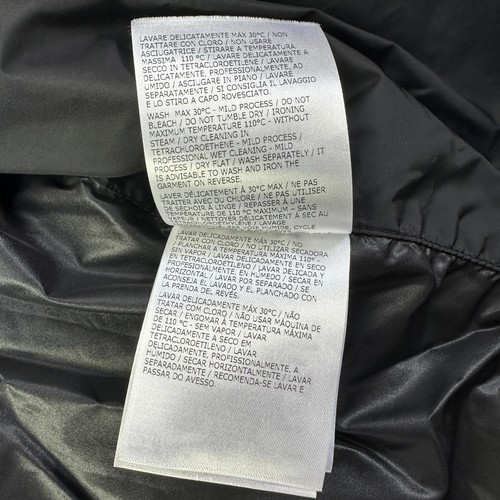 LAVARE DELICATAMENTE MAX 30°C / NON
TRATTARE CON CLORO / NON USARE
ASCIUGATRICE / STIRARE A TEMPERATURA
MASSIMA 110 °C / LAVARE DELICATAMENTE A
SECCO IN TETRACLOROETILENE / LAVARE
DELICATAMENTE, PROFESSIONALMENTE, AD
UMIDO / ASCIUGARE IN PIANO / LAVARE
SEPARATAMENTE / SI CONSIGLIA IL LAVAGGIO
E LO STIRO A CAPO ROVESCIATO.
WASH MAX 30°C - MILD PROCESS / DO NOT
BLEACH / DO NOT TUMBLE DRY / IRONING
MAXIMUM TEMPERATURE 110°C - WITHOUT
STEAM / DRY CLEANING IN
TETRACHLOROETHENE - MILD PROCESS /
PROFESSIONAL WET CLEANING - MILD
PROCESS / DRY FLAT / WASH SEPARATELY / IT
IS ADVISABLE TO WASH AND IRON THE
GARMENT ON REVERSE.
LAVER DÉLICATEMENT À 30°C MAX / NE PAS
TRAITER AVEC DU CHLORE / NE PAS UTILISER
DE SÉCHOIR À LINGE / REPASSER À UNE
TEMPÉRATURE DE 110 °C MAXIMUM – SANS
VAPEUR / NETTOYER DÉLICATEMENT À SEC AU
LAVAGE
HUMIDE, CYCLE
LAVAR DELICADAMENTE MÁX 30°C / NO
TRATAR CON CLORO / NO UTILIZAR SECADORA
/ PLANCHAR A TEMPERATURA MÁXIMA 110° -
SIN VAPOR / LAVAR DELICADAMENTE EN SECO
EN TETRACLOROETILENO / LAVAR DELICADA Y
PROFESIONALMENTE, EN HÚMEDO / SECAR EN
HORIZONTAL / LAVAR POR SEPARADO / SE
ACONSEJA EL LAVADO Y EL PLANCHADO CON
LA PRENDA DEL REVÉS.
LAVAR DELICADAMENTE MÁX 30°C / NÃO
TRATAR COM CLORO / NÃO USAR MÁQUINA DE
SECAR / ENGOMAR À TEMPERATURA MÁXIMA
DE 110 °C - SEM VAPOR / LAVAR
DELICADAMENTE A SECO EM
TETRACLOROETILENO / LAVAR
DELICADAMENTE, PROFISSIONALMENTE, A
HÚMIDO / SECAR HORIZONTALMENTE / LAVAR
SEPARADAMENTE/RECOMENDA-SE LAVAR E
PASSAR DO AVESSO.